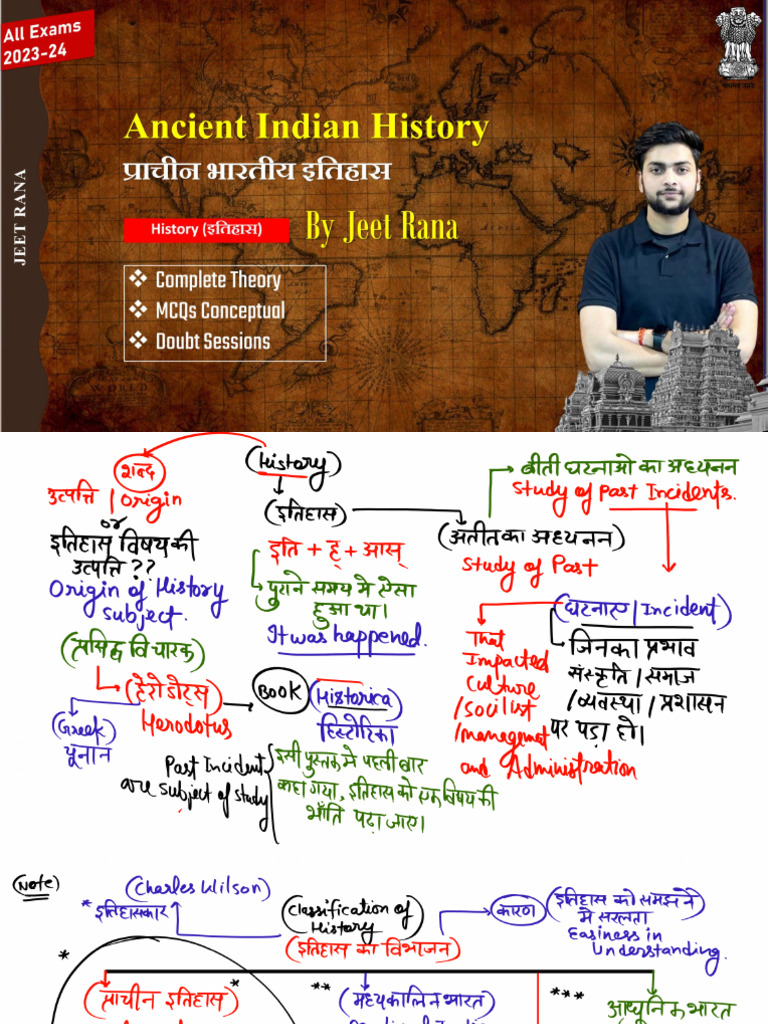 All Exams
2023-24
JEET RANA
Ancient Indian History
प्राचीन भारतीय इतिहास
History (इतिहास)
By Jeet Rana
❖ Complete Theory
❖ MCQs Conceptual
❖ Doubt Sessions
शब्द
उत्पत्ति / Origin
or
इतिहास विषय की
उत्पत्ति ??
Origin of History
Subject.
(History)
(इतिहास)
इति + ह् + आस्
पुराने समय मे ऐसा
हुआ था।
It was happened.
बीती घटनाओ का अध्ययन
Study of Past Incidents.
(अतीत का अध्ययन)
Study of Past
(घटनाए / Incident)
जिनका प्रभाव
संस्कृति / समाज
/ व्यवस्था / प्रशासन
पर पड़ा हो।
That
Impacted
Culture
/Socilist
/managemet
and Administration
(प्रसिद्ध विचारक)
(हेरोडोट्स)
Herodotus
(Greek)
यूनान
BOOK
(Historica)
हिस्टोरिका
Past Incident
are subject of study
इसी पुस्तक मे पहली बार
कहा गया, इतिहास को एक विषय की
भाँति पढ़ा जाए।
(Note)
(Charles Wilson)
* इतिहासकार
(Classification of
History)
(इतिहास का विभाजन)
कारण
(इतिहास को समझने
मे सरलता
Easiness in
Understanding.
*
(प्राचीन इतिहास) *
** (मध्यकालिन भारत)
*** आधुनिक भारत